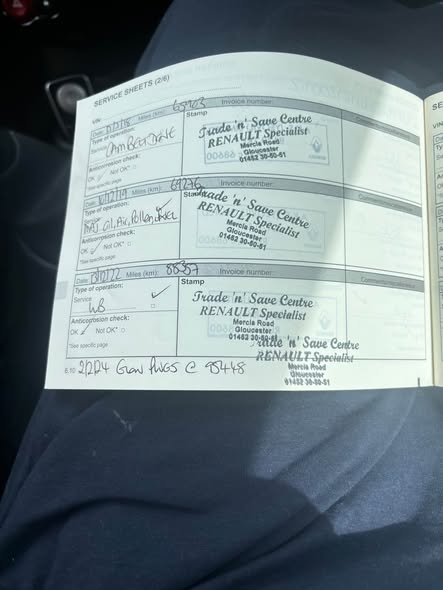 SERVICE SHEETS (2/6)
VIN:
Date: Miles (km): Invoice number:
Type of operation:
Service
CAMBELT DONE
Anticorrosion check:
OK Not OK*
*See specific page
Stamp
Trade 'n' Save Centre
RENAULT Specialist
Mercia Road
Gloucester
01452 30-50-51
Date: Miles (km): 69276 Invoice number:
Type of operation:
Oil, Air, Pollen,
Anticorrosion check:
OK Not OK*
*See specific page
Stamp
Trade 'n' Save Centre
RENAULT Specialist
Mercia Road
Gloucester
01452 30-50-51
Date: Miles (km): 88357 Invoice number:
Type of operation:
Service
Anticorrosion check:
OK Not OK*
*See specific page
Stamp
Trade 'n' Save Centre
RENAULT Specialist
Mercia Road
Gloucester
01452 30-50-51
Trade 'n' Save Centre
RENAULT Specialist
Mercia Road
Gloucester
01452 30-50-51
6.10 2/2/24 Glow PLUGS @ 95448
SERV
VIN